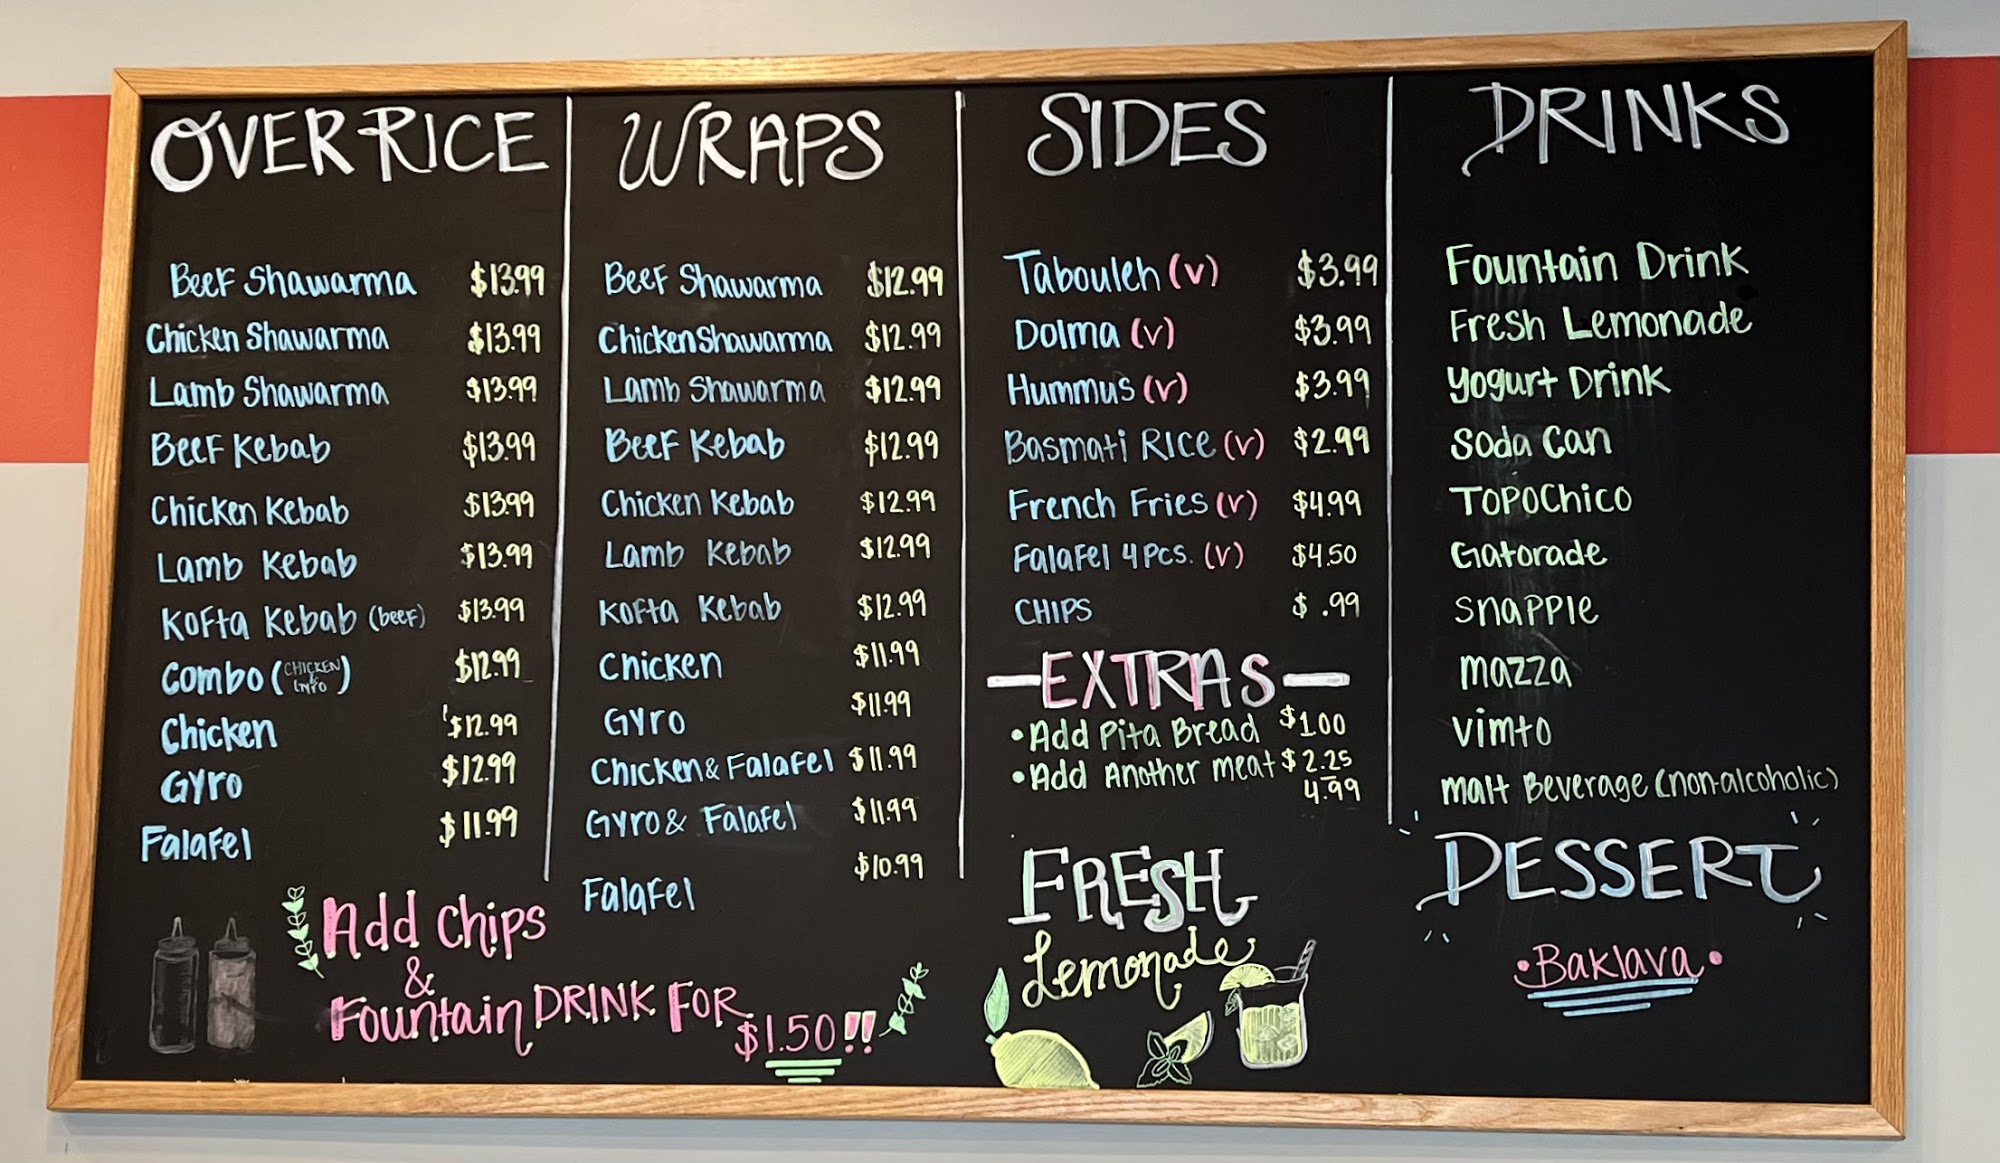 OVER RICE
Beef Shawarma $13.99
Chicken Shawarma $13.99
Lamb Shawarma $13.99
Beef Kebab $13.99
Chicken Kebab $13.99
Lamb Kebab $13.99
Kofta Kebab (beef) $13.99
Combo (CHICKEN & GYRO) $12.99
Chicken $12.99
Gyro $12.99
Falafel $11.99
WRAPS
Beef Shawarma $12.99
Chicken Shawarma $12.99
Lamb Shawarma $12.99
Beef Kebab $12.99
Chicken Kebab $12.99
Lamb Kebab $12.99
Kofta Kebab $12.99
Chicken $11.99
Gyro $11.99
Chicken & Falafel $11.99
Gyro & Falafel $11.99
Falafel $10.99
Add Chips
&
Fountain DRINK FOR
$1.50!!
SIDES
Tabouleh (v) $3.99
Dolma (v) $3.99
Hummus (v) $3.99
Basmati Rice (v) $2.99
French Fries (v) $4.99
Falafel 4 Pcs. (v) $4.50
CHIPS $ .99
EXTRAS
• Add Pita Bread $1.00
• Add Another meat $2.25
- 4.99
FRESH
Lemonade
DRINKS
Fountain Drink
Fresh Lemonade
Yogurt Drink
Soda Can
TOPOCHICO
Gatorade
Snapple
Mazza
Vimto
Malt Beverage (non-alcoholic)
DESSERT
• Baklava •